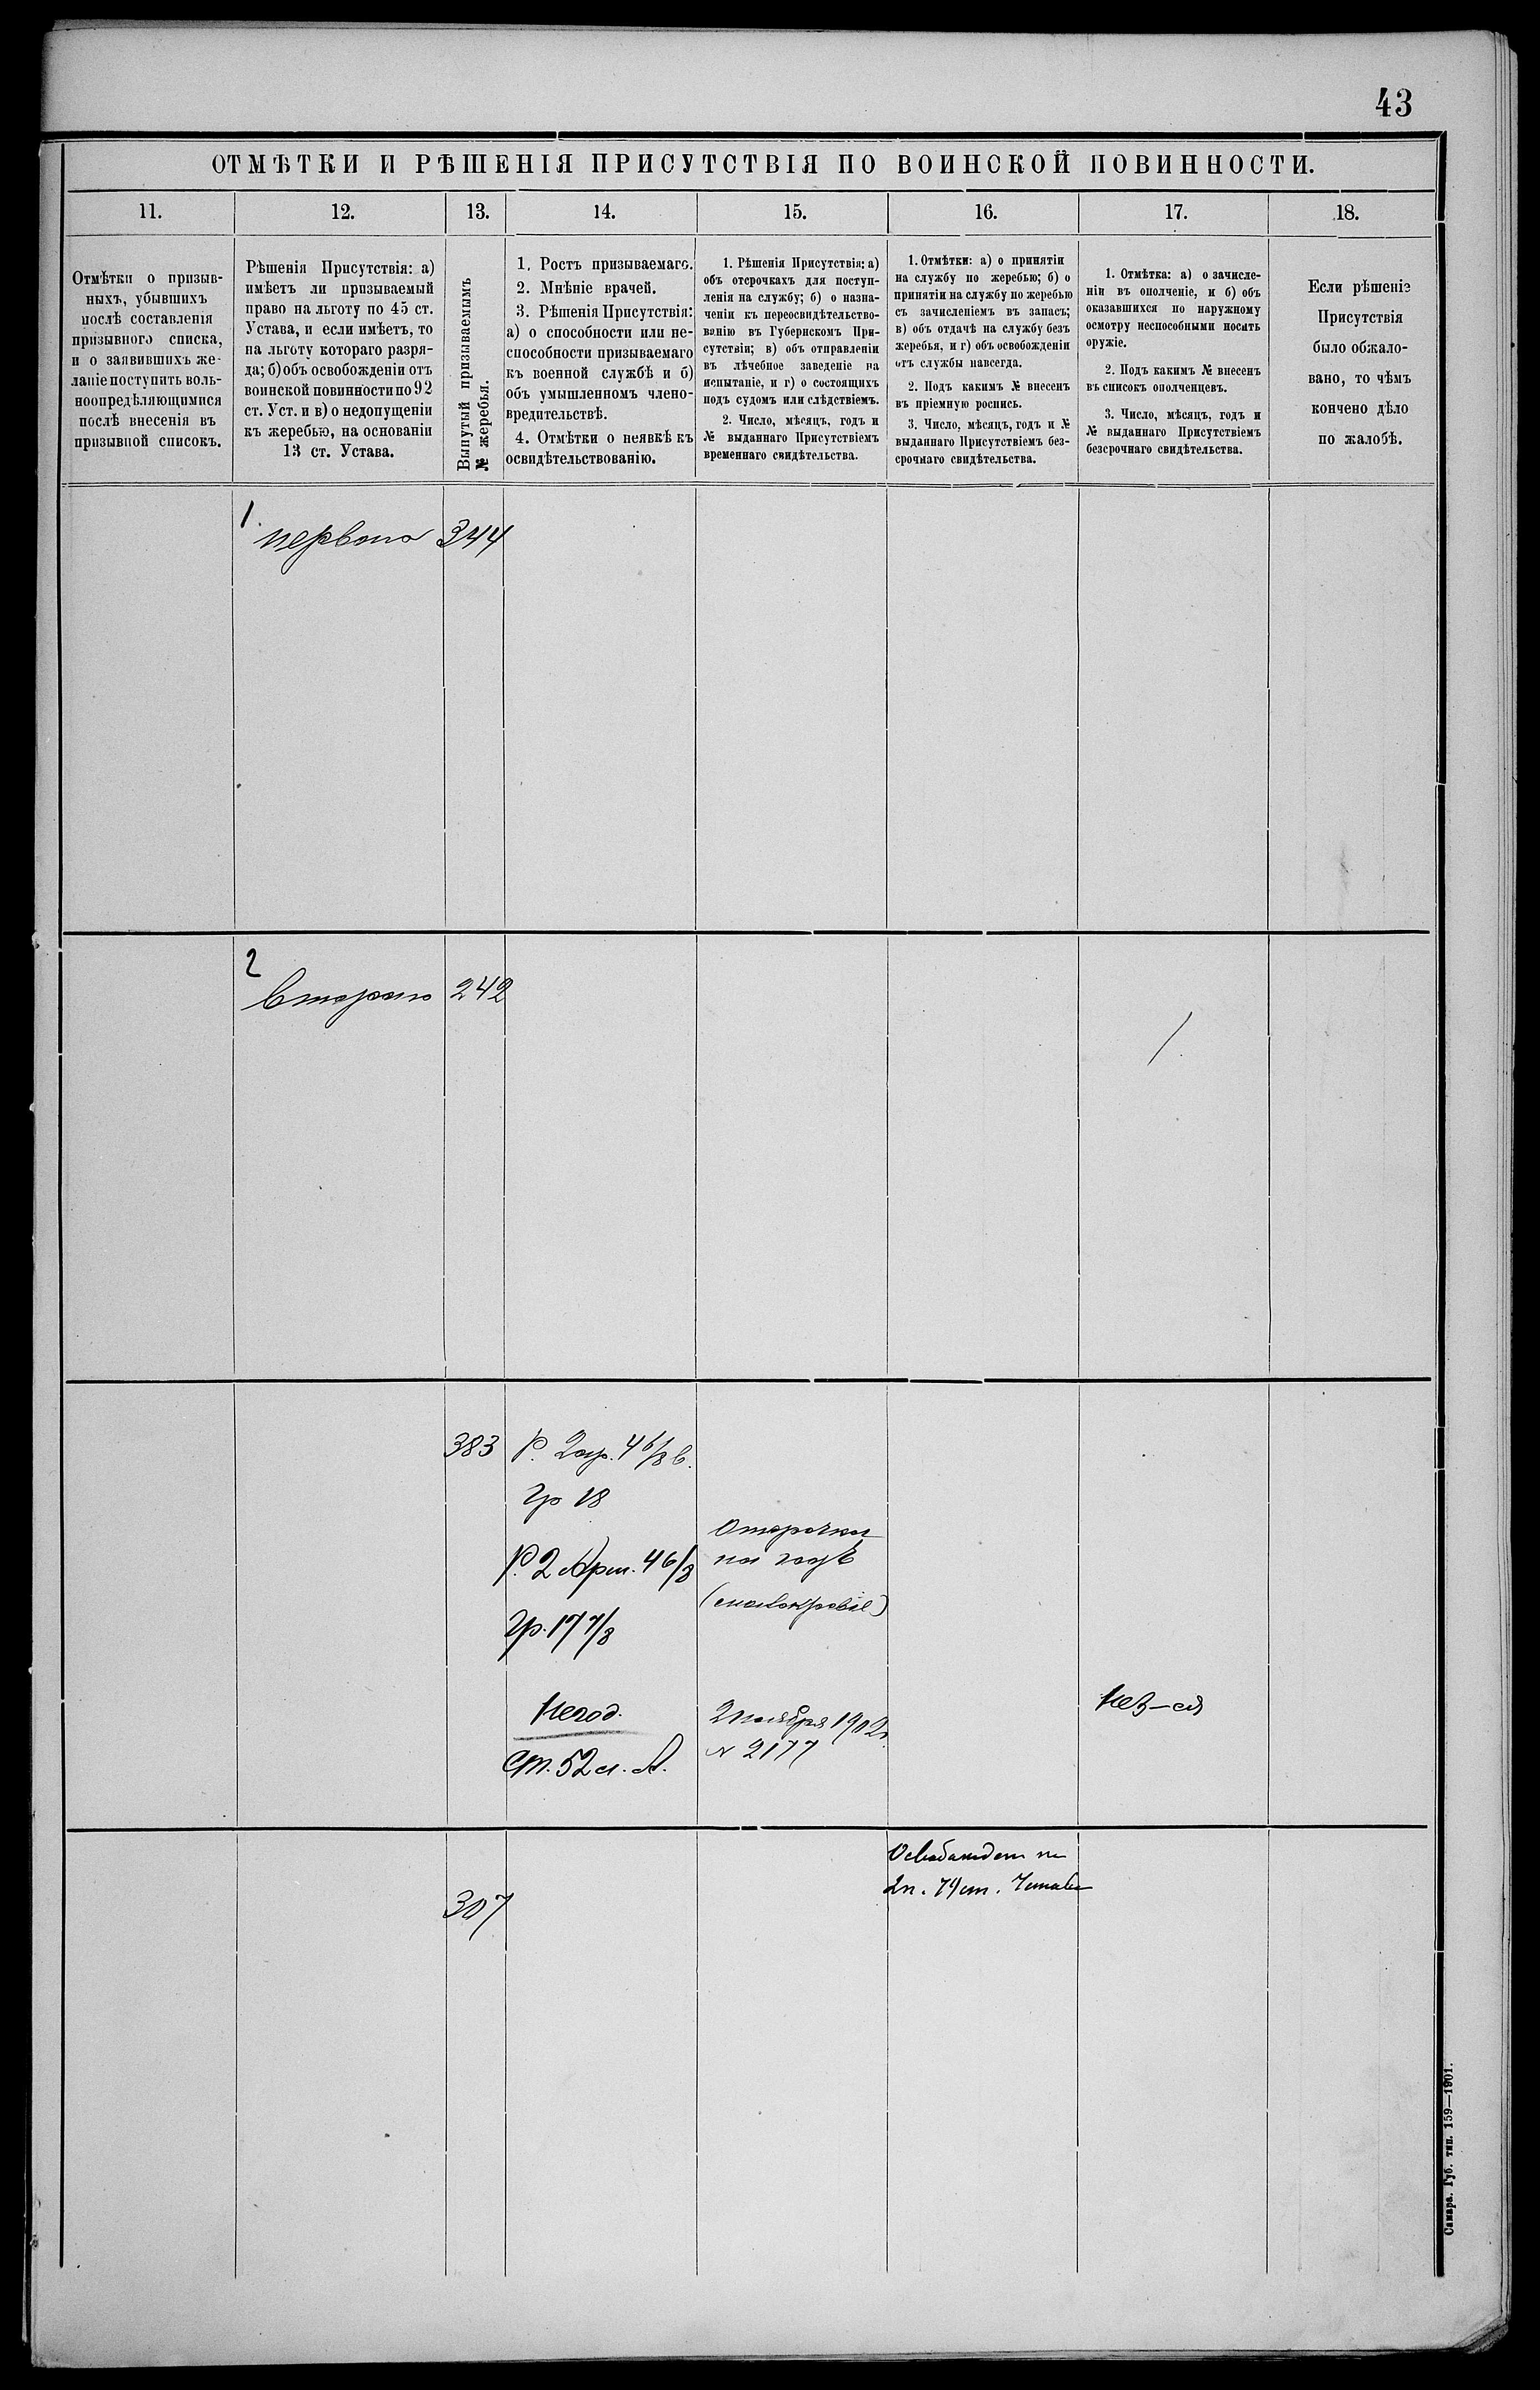 43
ОТМѢТКИ И РѢШЕНІЯ ПРИСУТСТВІЯ ПО ВОИНСКОЙ ПОВИННОСТИ.
11.
12.
13.
14.
15.
16.
17.
18.
Отмѣтки о призыв-
ныхъ, убывшихъ
послѣ составленія
призывного списка,
и о заявившихъ же-
ланіе поступить воль-
ноопредѣляющимися
послѣ внесенія въ
призывной списокъ.
Рѣшенія Присутствія: а)
имѣетъ ли призываемый
право на льготу по 45 ст.
Устава, и если имѣетъ, то
на льготу котораго разря-
да; б) объ освобожденіи отъ
воинской повинности по 92
ст. Уст. и в) о недопущеніи
къ жеребью, на основаніи
13 ст. Устава.
Вынутый призываемымъ
№ жеребья.
1. Ростъ призываемаго.
2. Мнѣніе врачей.
3. Рѣшенія Присутствія:
а) о способности или не-
способности призываемаго
къ военной службѣ и б)
объ умышленномъ члено-
вредительствѣ.
4. Отмѣтки о неявкѣ къ
освидѣтельствованію.
1. Рѣшенія Присутствія: а)
объ отсрочкахъ для поступ-
ленія на службу; б) о назна-
ченіи къ переосвидѣтельство-
ванію въ Губернскомъ При-
сутствіи; в) объ отправленіи
въ лѣчебное заведеніе на
испытаніе, и г) о состоящихъ
подъ судомъ или слѣдствіемъ.
2. Число, мѣсяцъ, годъ и
№ выданнаго Присутствіемъ
временнаго свидѣтельства.
1. Отмѣтки: а) о принятіи
на службу по жеребью; б) о
принятіи на службу по жеребью
съ зачисленіемъ въ запасъ;
в) объ отдачѣ на службу безъ
жеребья, и г) объ освобожденіи
отъ службы навсегда.
2. Подъ какимъ № внесенъ
въ пріемную роспись.
3. Число, мѣсяцъ, годъ и №
выданнаго Присутствіемъ без-
срочнаго свидѣтельства.
1. Отмѣтка: а) о зачисле-
ніи въ ополченіе, и б) объ
оказавшихся по наружному
осмотру неспособными носить
оружіе.
2. Подъ какимъ № внесенъ
въ списокъ ополченцевъ.
3. Число, мѣсяцъ, годъ и
№ выданнаго Присутствіемъ
безсрочнаго свидѣтельства.
Если рѣшеніе
Присутствія
было обжало-
вано, то чѣмъ
кончено дѣло
по жалобѣ.
1.
перваго 344
2
втораго 242
383 Р. 2 ар. 4 6/8 в.
Гр 18
Р. 2 Арш. 4 6/8
Гр. 17 7/8
Негод.
Ст. 52 л. А.
Отсрочка
на годъ
(малокровіе)
2 ноября 1902 г.
№ 2177
307
Освобожден по
2 п. 79 ст. Устава
Самара. Губ. тип. 159—1901.